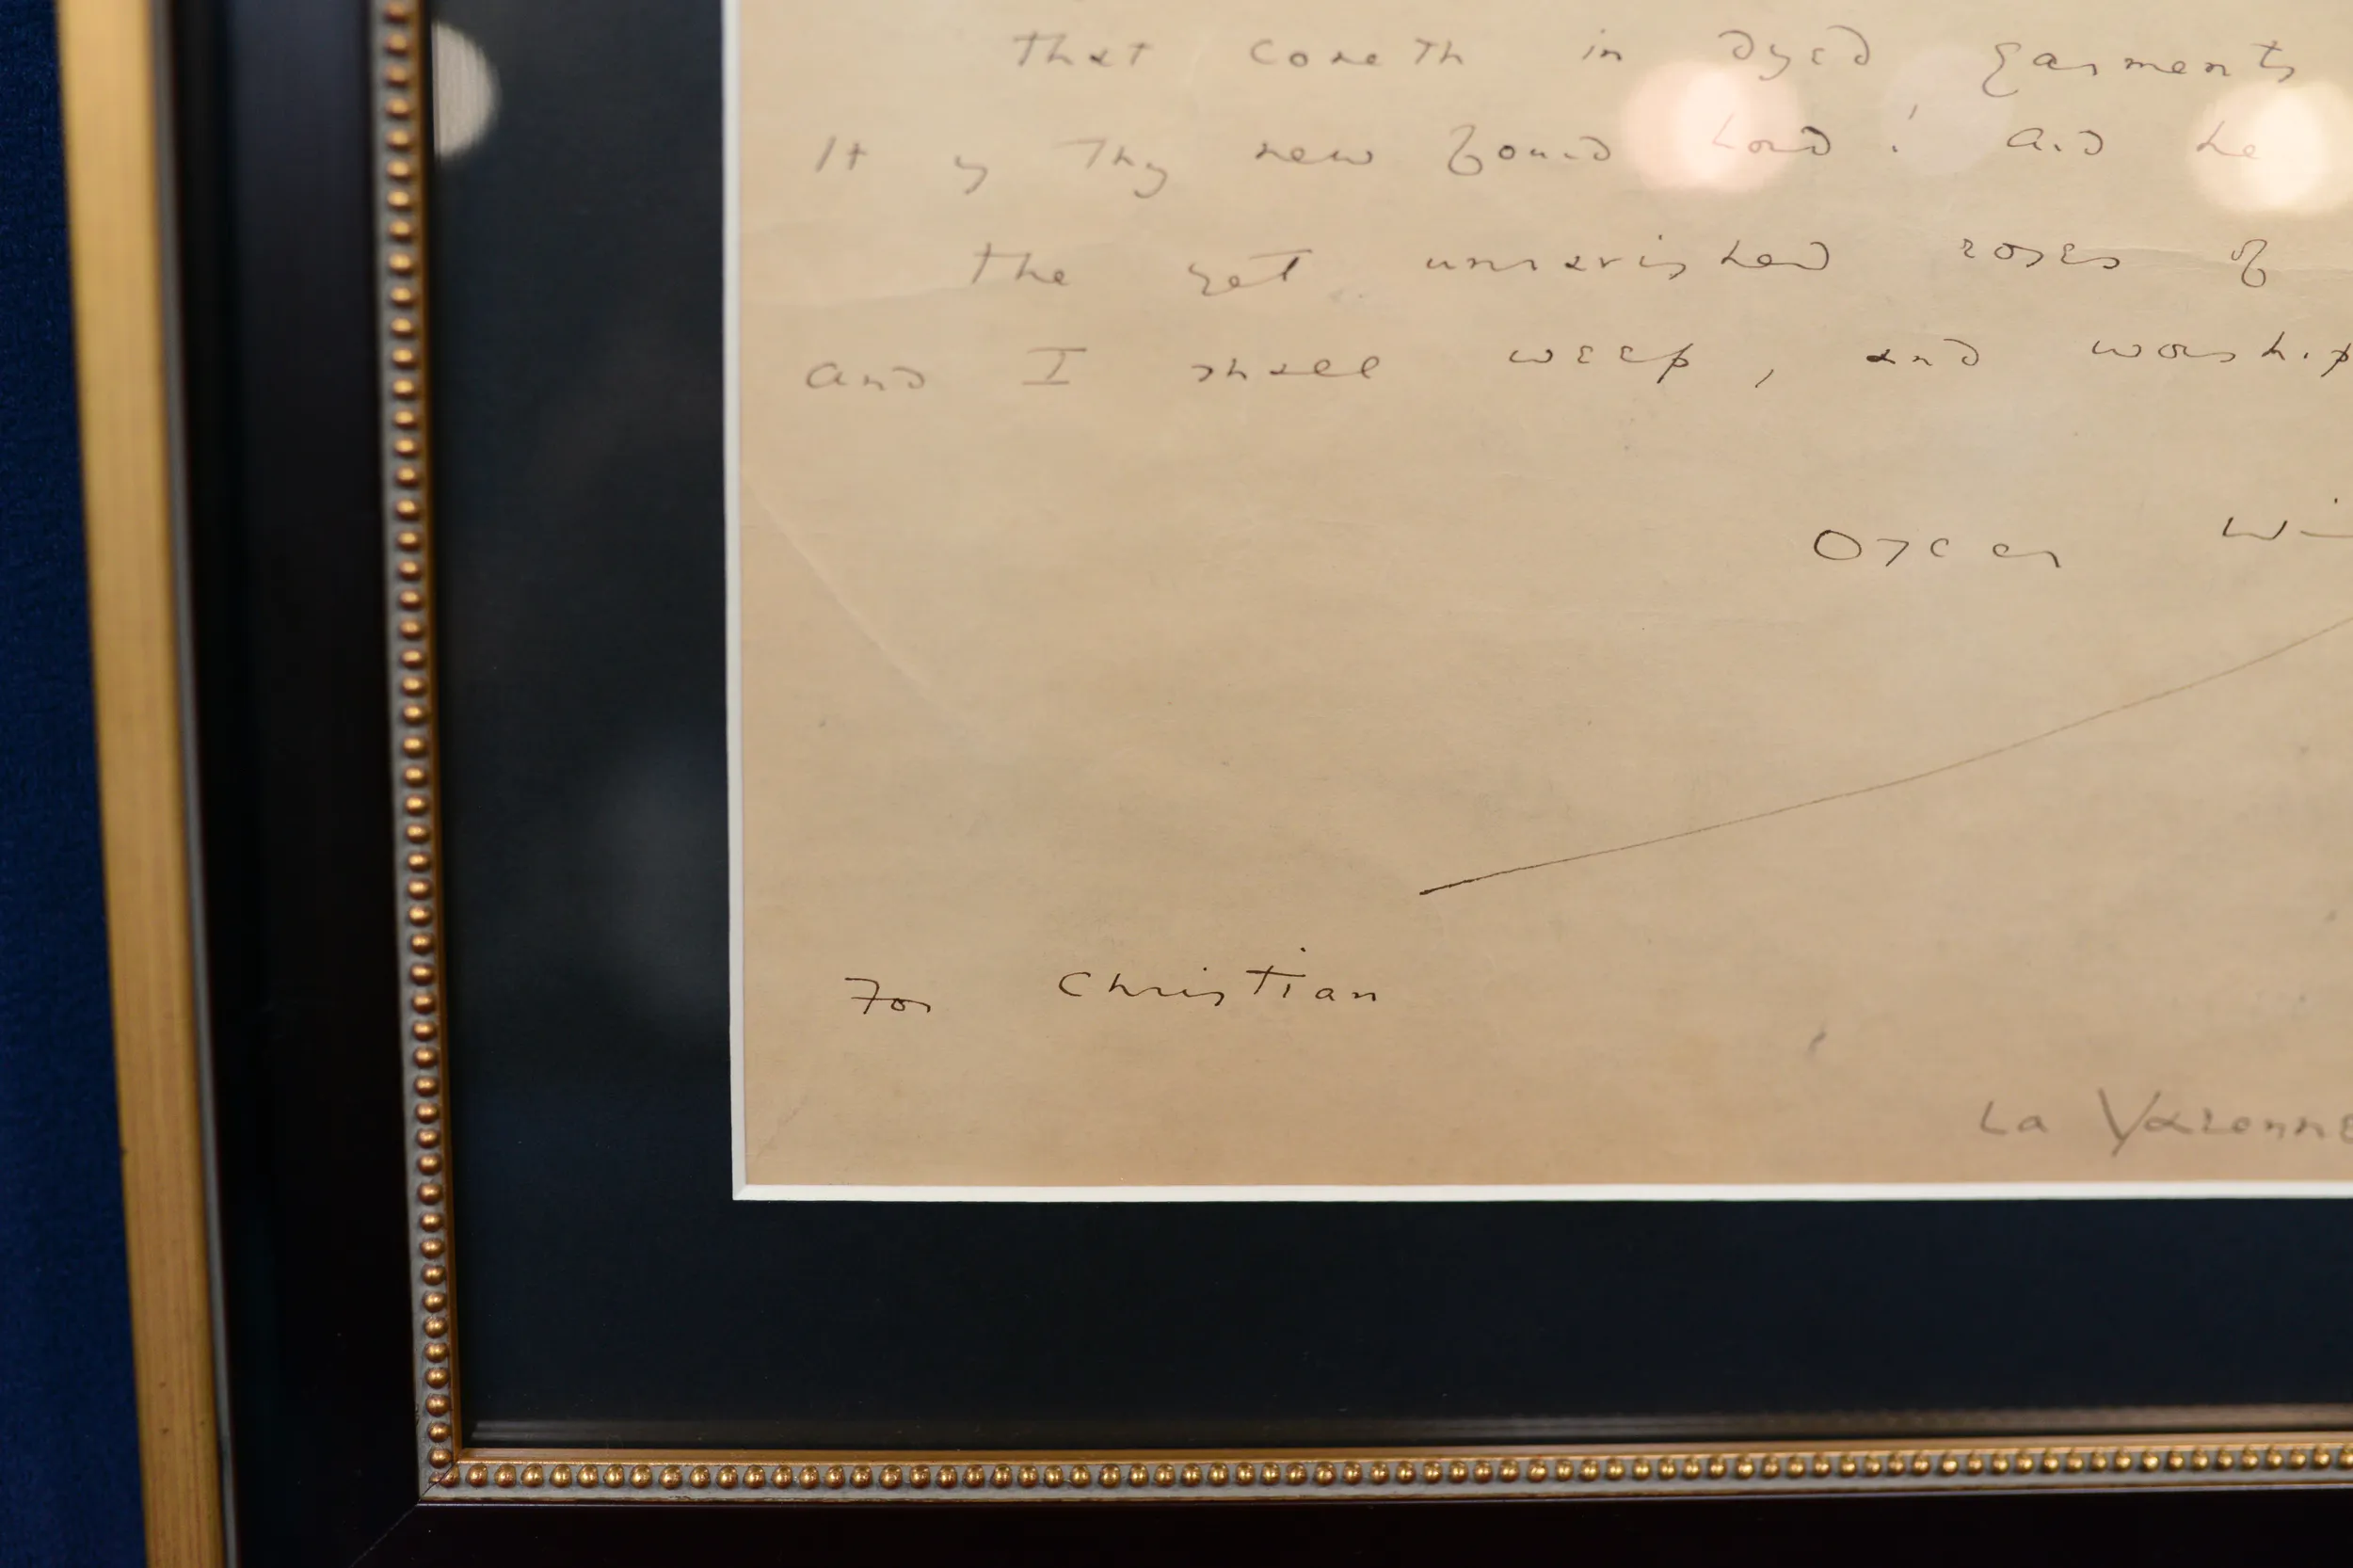 That cometh in dyed garments
It is Thy new found Lord! and he
the yet unravished roses of
and I shall weep, and worship
Oscar Wi
For Christian
La Varenne